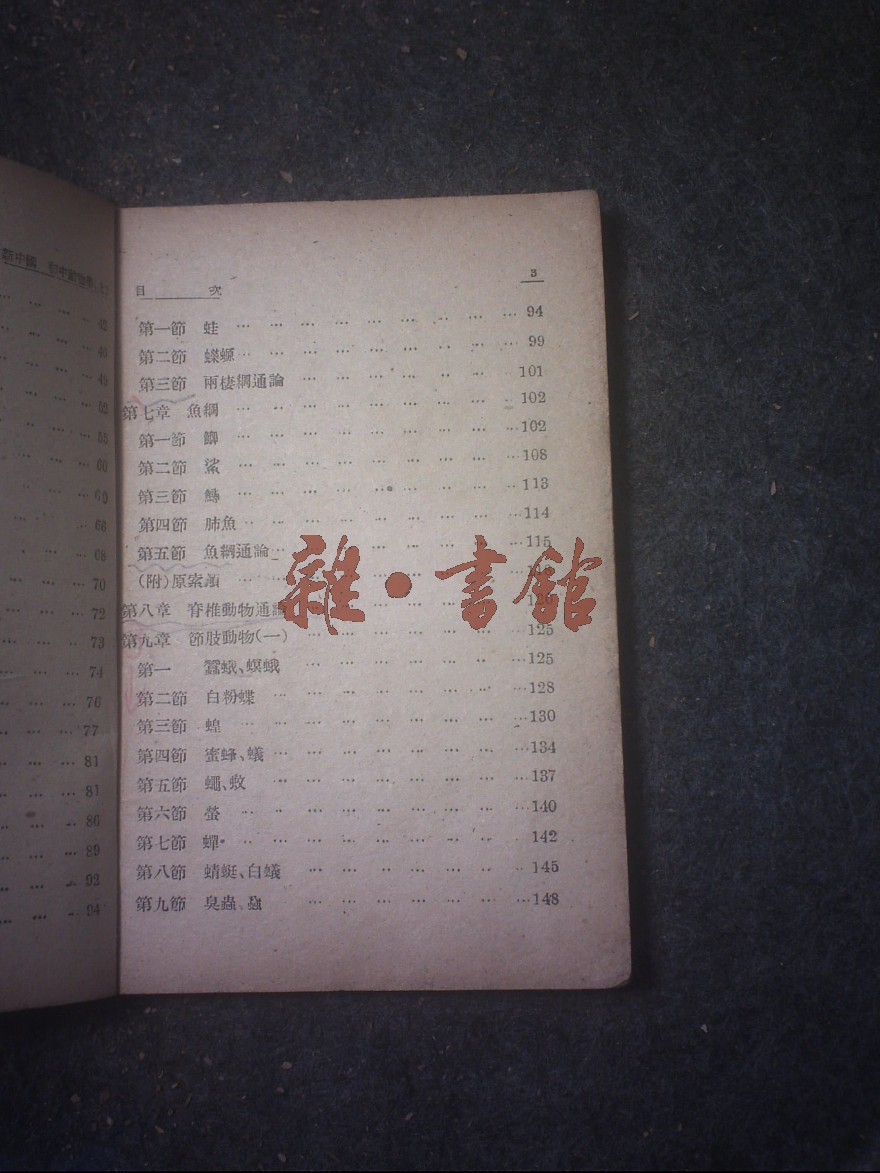 新中國 初中動物學(上)
42
46
49
52
53
60
62
66
68
70
72
73
74
76
77
81
81
86
89
92
94
目 次 3
第一節 蛙 … … … … … … … … … 94
第二節 蠑螈 … … … … … … … … … 99
第三節 兩棲綱通論 … … … … … … … 101
第七章 魚綱 … … … … … … … … … 102
第一節 鯽 … … … … … … … … … 102
第二節 鯊 … … … … … … … … … 108
第三節 鱘 … … … … … … … … … 113
第四節 肺魚 … … … … … … … … … 114
第五節 魚綱通論 … … … … … … … 115
(附)原索類 … … … … … … …
第八章 脊椎動物通論 … … … … … …
第九章 節肢動物(一) … … … … … … … 125
第一 蠶蛾、螟蛾 … … … … … … … 125
第二節 白粉蝶 … … … … … … … … 128
第三節 蝗 … … … … … … … … … 130
第四節 蜜蜂、蟻 … … … … … … … … 134
第五節 蠅、蚊 … … … … … … … … 137
第六節 螢 … … … … … … … … … 140
第七節 蟬 … … … … … … … … … 142
第八節 蜻蜓、白蟻 … … … … … … … 145
第九節 臭蟲、蝨 … … … … … … … 148
雜·書館